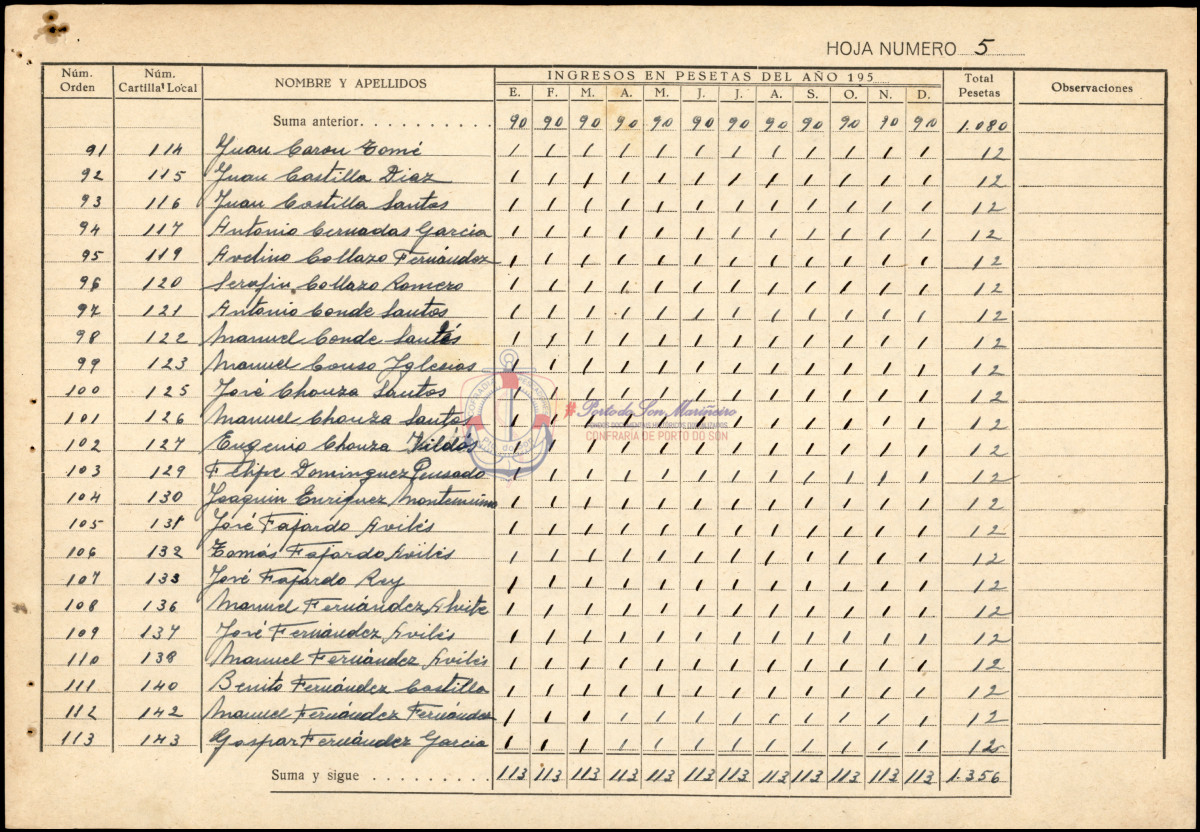 HOJA NUMERO 5
Núm. Orden Núm. Cartilla Local NOMBRE Y APELLIDOS INGRESOS EN PESETAS DEL AÑO 195 Total Pesetas Observaciones
E. F. M. A. M. J. J. A. S. O. N. D.
Suma anterior 90 90 90 90 90 90 90 90 90 90 90 90 1.080
91 114 Juan Carou Tomé 1 1 1 1 1 1 1 1 1 1 1 1 12
92 115 Juan Castilla Diaz 1 1 1 1 1 1 1 1 1 1 1 1 12
93 116 Juan Castilla Santos 1 1 1 1 1 1 1 1 1 1 1 1 12
94 117 Antonio Cernadas Garcia 1 1 1 1 1 1 1 1 1 1 1 1 12
95 119 Avelino Collazo Fernández 1 1 1 1 1 1 1 1 1 1 1 1 12
96 120 Serafin Collazo Romero 1 1 1 1 1 1 1 1 1 1 1 1 12
97 121 Antonio Conde Santos 1 1 1 1 1 1 1 1 1 1 1 1 12
98 122 Manuel Conde Santos 1 1 1 1 1 1 1 1 1 1 1 1 12
99 123 Manuel Couso Iglesias 1 1 1 1 1 1 1 1 1 1 1 1 12
100 125 José Chouza Santos 1 1 1 1 1 1 1 1 1 1 1 1 12
101 126 Manuel Chouza Santos 1 1 1 1 1 1 1 1 1 1 1 1 12
102 127 Eugenio Chouza Vildós 1 1 1 1 1 1 1 1 1 1 1 1 12
103 129 Felipe Dominguez Pensado 1 1 1 1 1 1 1 1 1 1 1 1 12
104 130 Joaquin Enriquez 1 1 1 1 1 1 1 1 1 1 1 1 12
105 131 José Fajardo Avilés 1 1 1 1 1 1 1 1 1 1 1 1 12
106 132 Tomás Fajardo Avilés 1 1 1 1 1 1 1 1 1 1 1 1 12
107 133 José Fajardo Rey 1 1 1 1 1 1 1 1 1 1 1 1 12
108 136 Manuel Fernández 1 1 1 1 1 1 1 1 1 1 1 1 12
109 137 José Fernández Avilés 1 1 1 1 1 1 1 1 1 1 1 1 12
110 138 Manuel Fernández Avilés 1 1 1 1 1 1 1 1 1 1 1 1 12
111 140 Benito Fernández Castilla 1 1 1 1 1 1 1 1 1 1 1 1 12
112 142 Manuel Fernández Fernández 1 1 1 1 1 1 1 1 1 1 1 1 12
113 143 Gaspar Fernández Garcia 1 1 1 1 1 1 1 1 1 1 1 1 12
Suma y sigue 113 113 113 113 113 113 113 113 113 113 113 113 1.356
#Porto do Son Mariñeiro
CONFRARIA DE PORTO DO SON